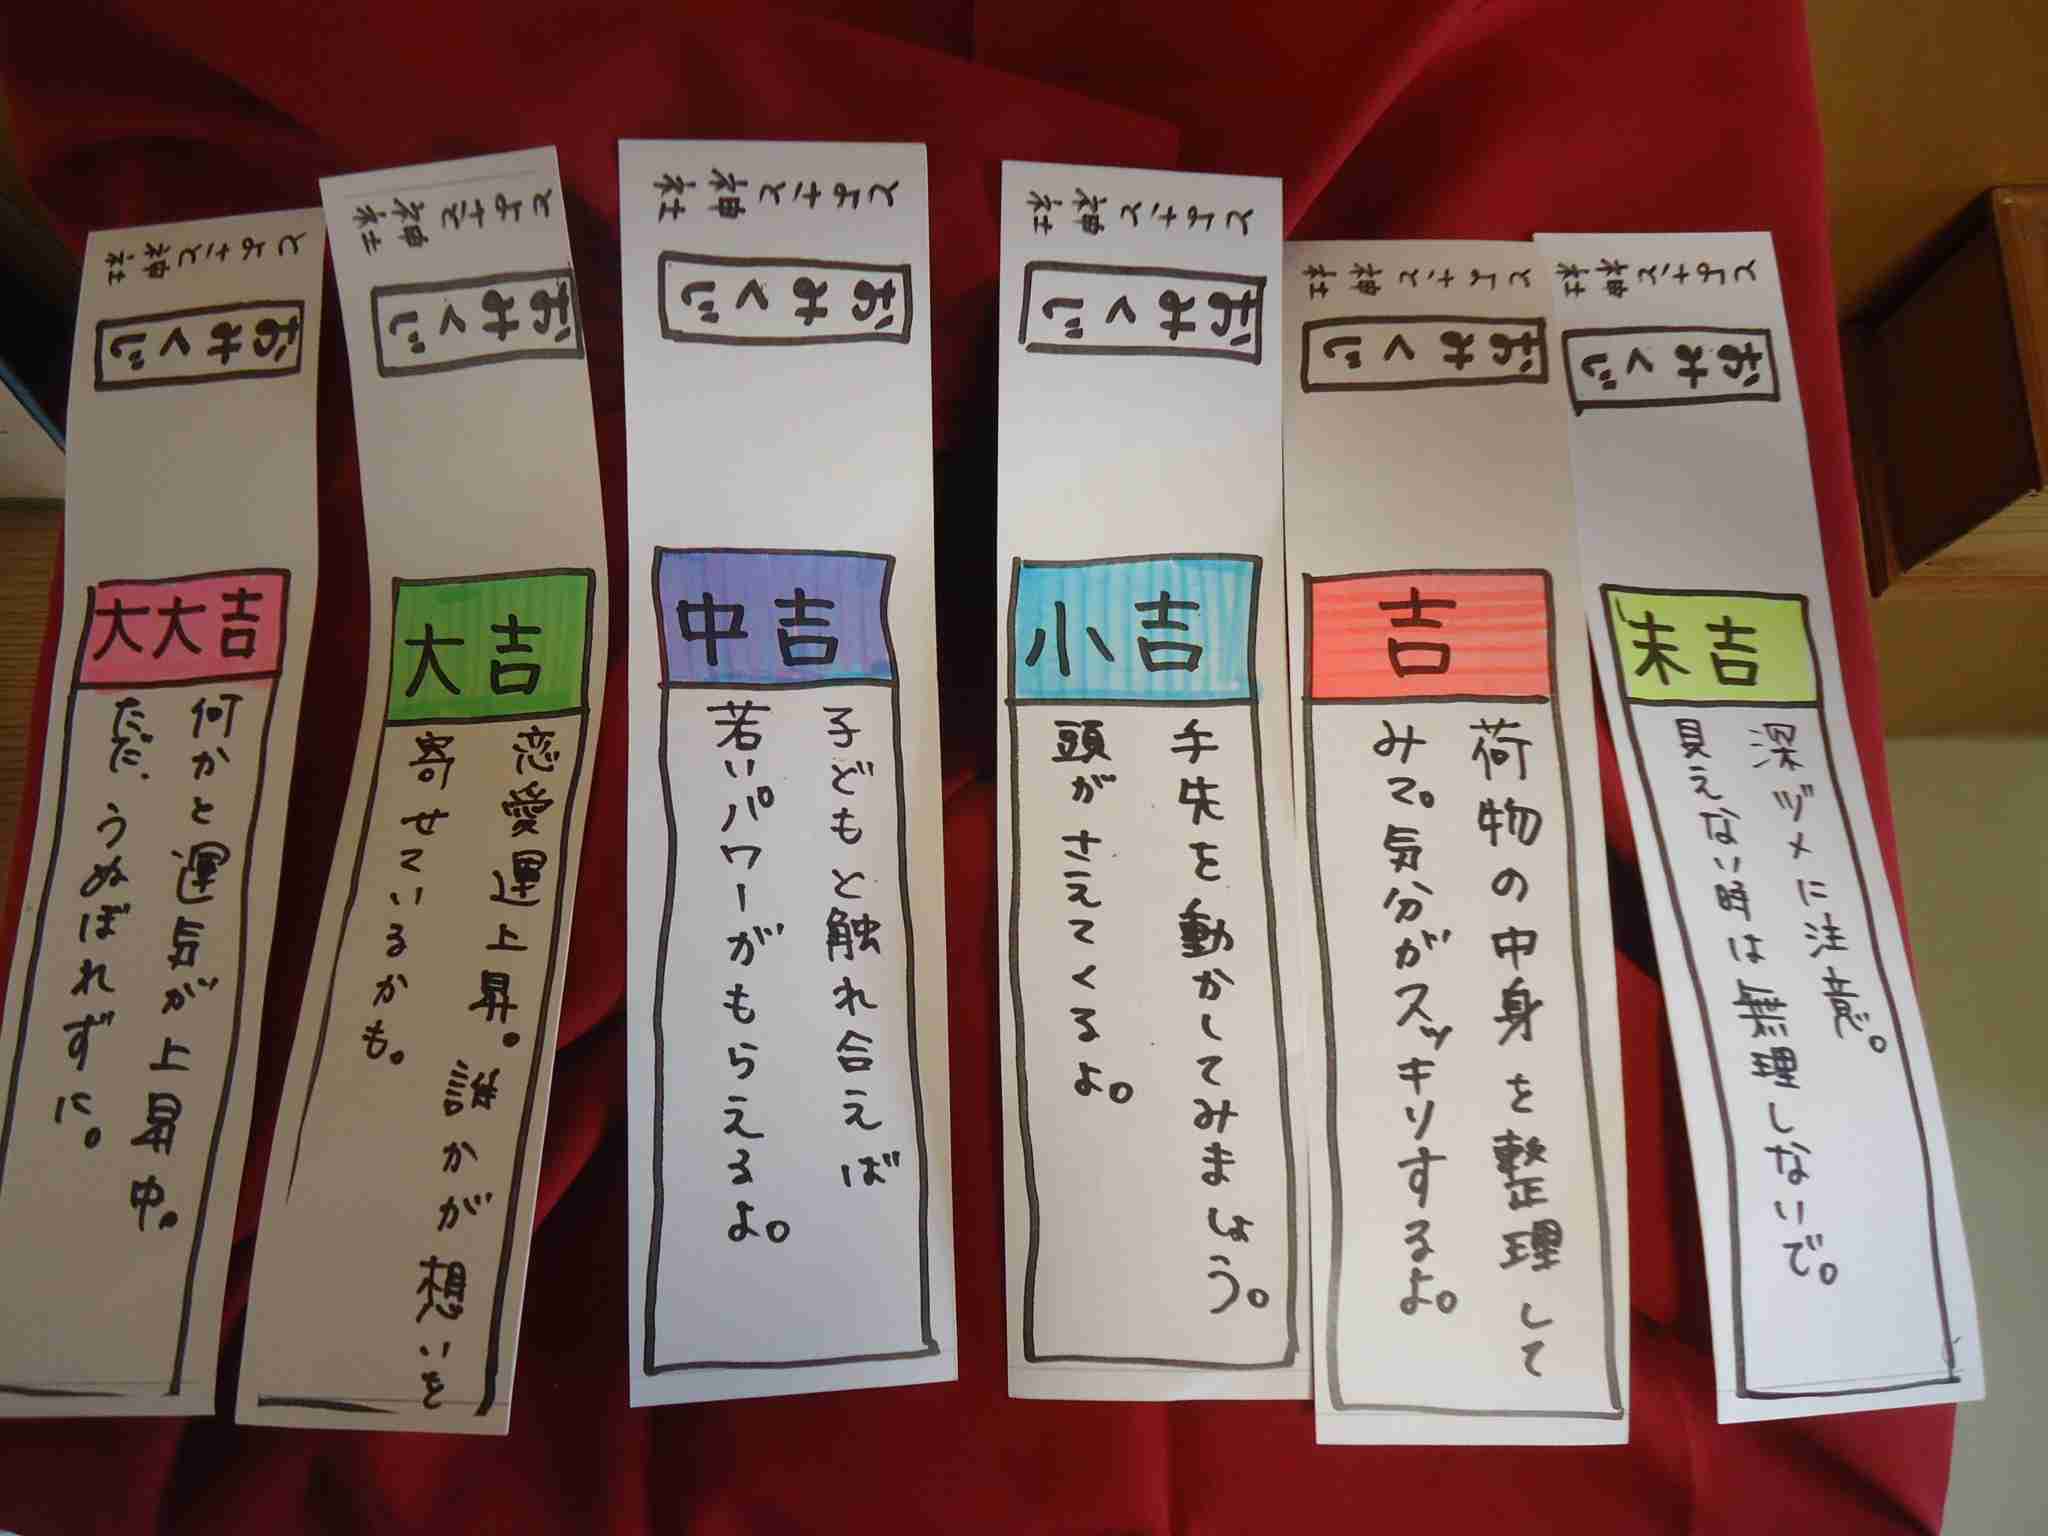 とよさと
神社
おみくじ
大大吉
何かと運気が上昇中。
ただ、うぬぼれずに。
とよさと
神社
おみくじ
大吉
恋愛運上昇。誰かが想いを
寄せているかも。
とよさと
神社
おみくじ
中吉
子どもと触れ合えば
若いパワーがもらえるよ。
とよさと
神社
おみくじ
小吉
手先を動かしてみましょう。
頭がさえてくるよ。
とよさと
神社
おみくじ
吉
荷物の中身を整理して
みて。気分がスッキリするよ。
とよさと
神社
おみくじ
末吉
深ヅメに注意。
見えない時は無理しないで。